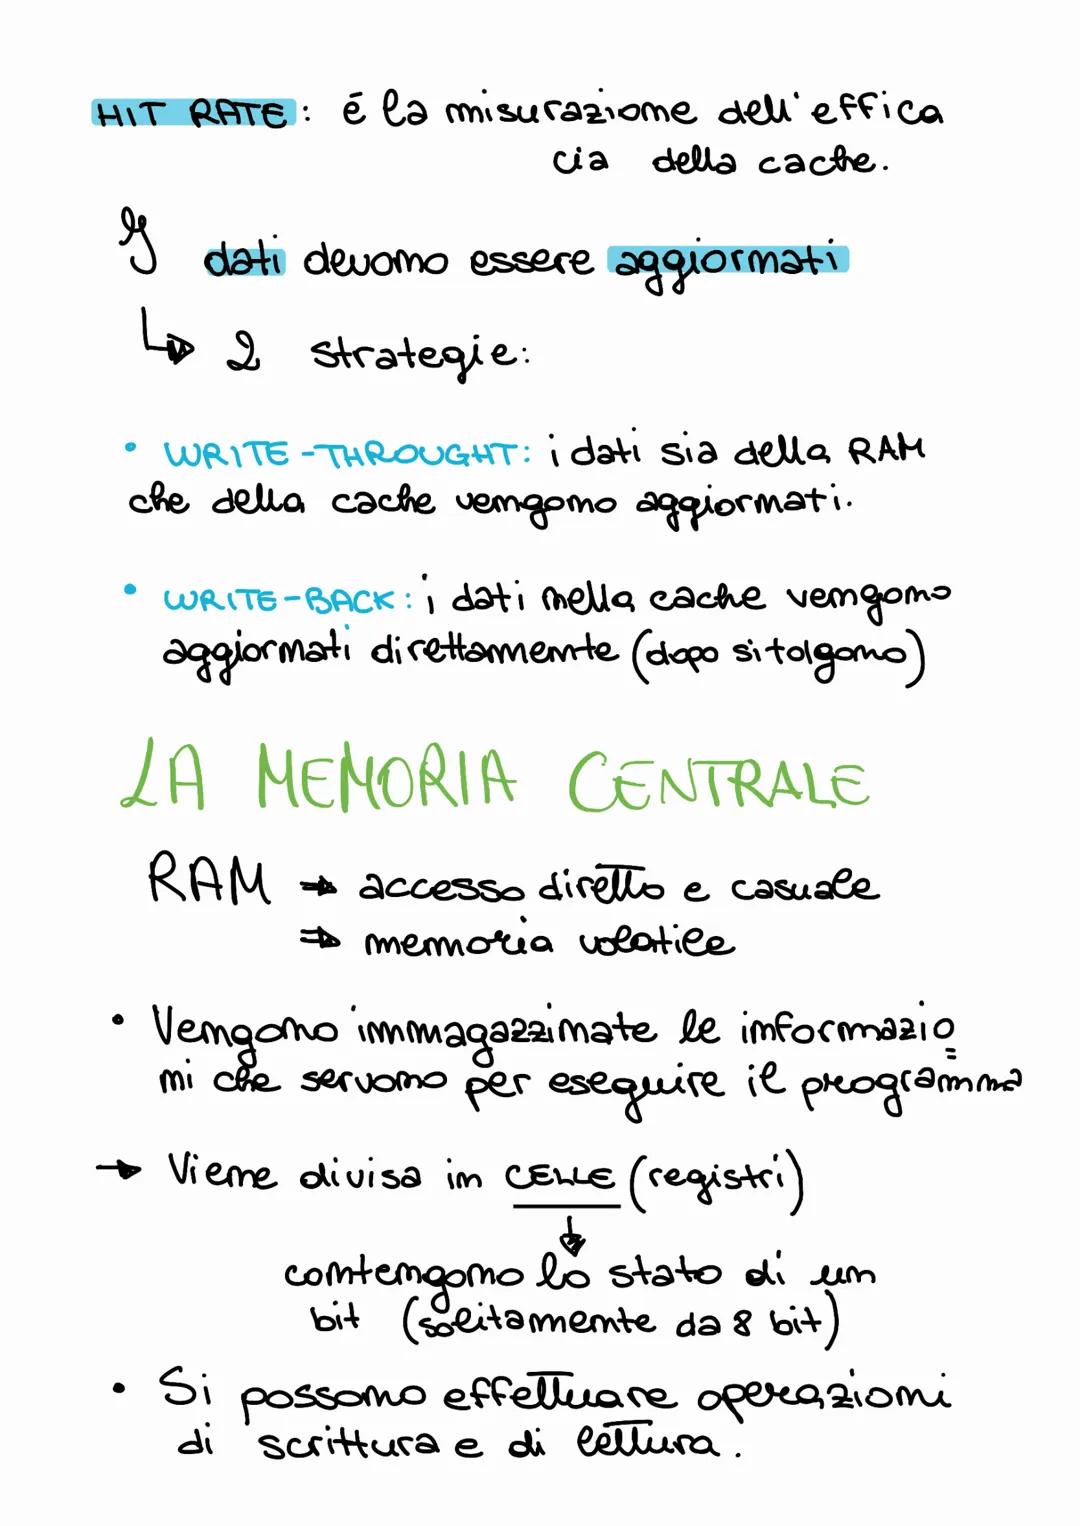 HIT RATE: é la misurazione dell'effica
cia della cache.
I dati devono essere aggiornati
↳ 2 strategie:
• WRITE-THROUGHT: i dati sia della RAM
che della cache vengono aggiornati.
• WRITE-BACK: i dati nella cache vengono
aggiornati direttamente (dopo si tolgono)
LA MEMORIA CENTRALE
RAM → accesso diretto e casuale
⇒ memoria volatile
• Vengono immagazzinate le informazio
ni che servono per eseguire il programma
→ Viene divisa in CELLE (registri)
contengono lo stato di un
bit (solitamente da 8 bit)
• Si possono effettuare operazioni
di scrittura e di lettura.